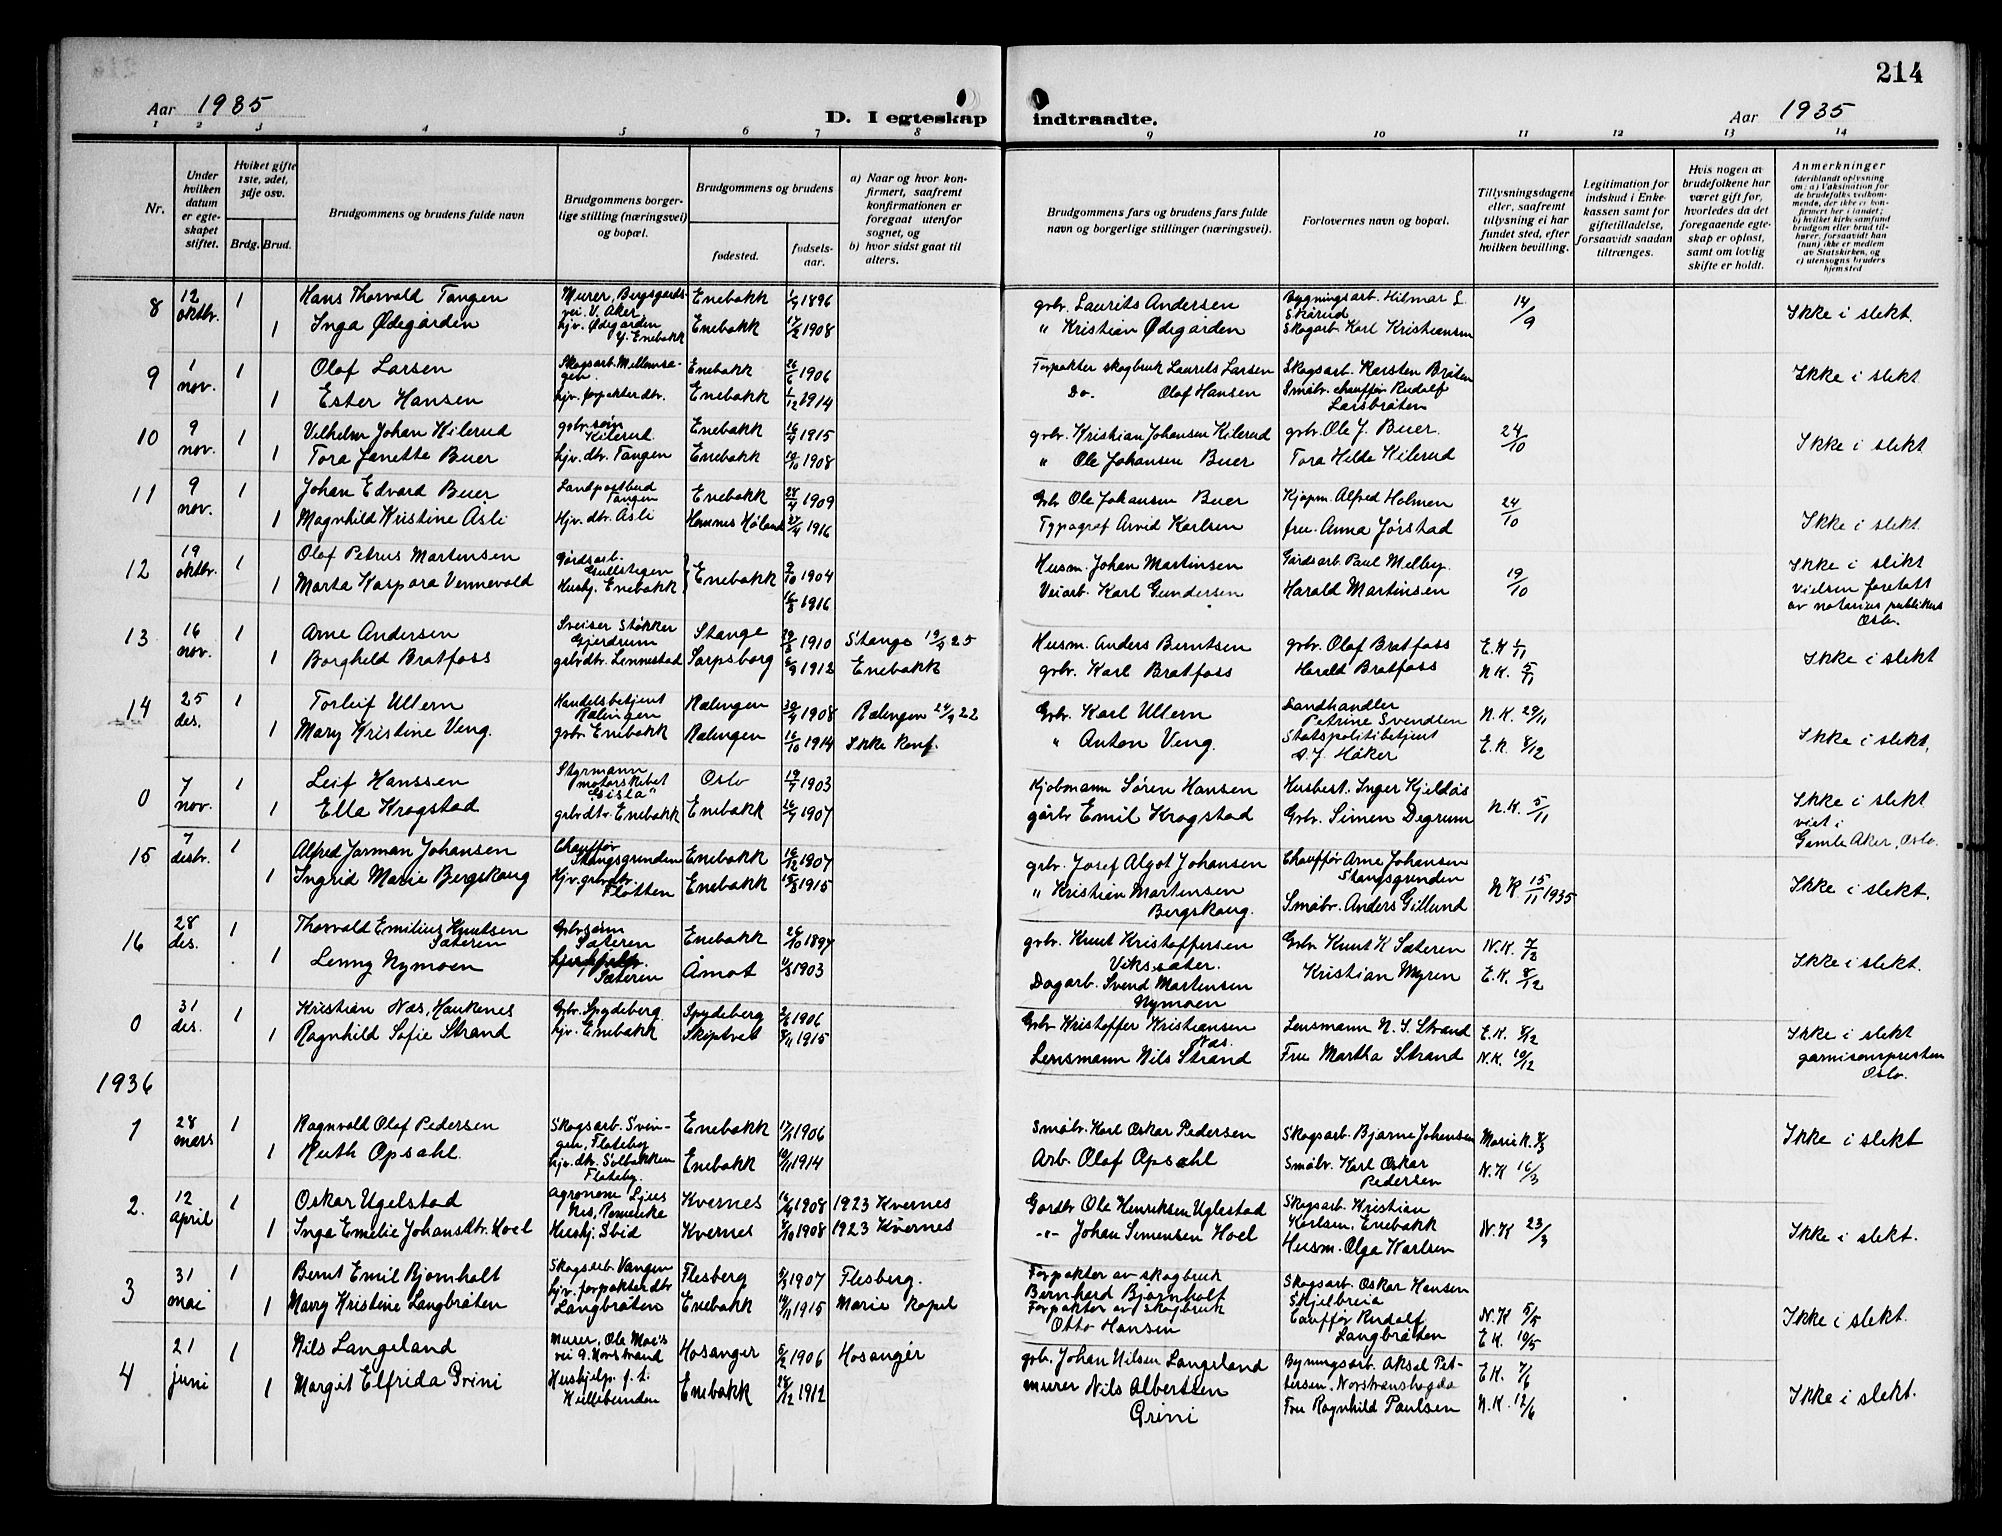 214
Aar 1935
D. I egteskap indtraadte.
Aar 1935
1 2 3 4 5 6 7 8 9 10 11 12 13 14
Nr.
Under hvilken datum er egteskapet stiftet.
Hviket gifte 1ste, 2det, 3dje osv.
Brdg. Brud.
Brudgommens og brudens fulde navn
Brudgommens borgerlige stilling (næringsvei) og bopæl.
Brudgommens og brudens
fødested.
fødselsaar.
a) Naar og hvor konfirmert, saafremt konfirmationen er foregaat utenfor sognet, og
b) hvor sidst gaat til alters.
Brudgommens fars og brudens fars fulde navn og borgerlige stillinger (næringsvei).
Forlovernes navn og bopæl.
Tillysningsdagene eller, saafremt tillysning ei har fundet sted, efter hvilken bevilling.
Legitimation for indskud i Enkekassen samt for giftetilladelse, forsaavidt saadan tiltrænges.
Hvis nogen av brudefolkene har været gift før, hvorledes da det foregaaende egteskap er opløst, samt om lovlig skifte er holdt.
Anmerkninger (deriblandt oplysning om: a) Vaksination for de brudefolks vedkommende, der ikke er konfirmert her i landet; b) hvilket kirkesamfund brudgom eller brud tilhører, forsaavidt han (hun) ikke er medlem av Statskirken, og c) utensogns bruders hjemsted
8 12 oktbr. 1 Hans Thorvald Tangen Murer, Bergsgards vei. V. Aker Enebakk 1/9 1896 gbr. Laurits Andersen Bygningsarb. Hilmar L. Skårud 14/9 Ikke i slekt.
1 Inga Ødegården hjv. Ødegården Y. Enebakk Enebakk 17/2 1908 " Kristian Ødegården Skogarb Karl Kristiansen
9 1 nov. 1 Olaf Larsen Skogsarb. Enebakk 26/6 1906 Forpakter skogbruk Laurits Larsen Skogsarb. Karsten Bråten Ikke i slekt
1 Ester Hansen hjv. forpakterdtr. Enebakk 1/12 1914 Do. Olaf Hansen Småbr. chauffør Rudolf
10 9 nov. 1 Vilhelm Johan Kilerud gbr. søn Kilerud Enebakk 16/4 1915 gbr. Kristian Johansen Kilerud gbr. Ole J. Buer. 24/10 Ikke i slekt
1 Tora Janette Buer hjv. dtr. Tangen Enebakk 19/10 1908 " Ole Johansen Buer Tora Hilda Kilerud
11 9 nov. 1 Johan Edvard Buer Landpostbud Tangen Enebakk 28/4 1909 Gbr Ole Johansen Buer Kjøpm. Alfred Holmen 24/10 Ikke i slekt
1 Magnhild Kristine Åsli Hjv. dtr. Åsli Hemnes Høland 27/4 1916 Typograf Arvid Karlsen fru. Anna Jørstad
12 19 oktbr. 1 Olaf Petrus Martensen Gårdsarb. Gullstegen Enebakk 9/10 1904 Husm. Johan Martinsen Gårdsarb. Paul Melby. 19/10 Ikke i slikt
1 Marta Kaspara Vennevold Hushj. Enebakk 16/8 1916 Veiarb. Karl Gundersen Harald Martinsen Vielsen foretatt av notarius publikus Oslo.
13 16 nov. 1 Arne Andersen Sveiser Støkker Gjerdrum Stange 29/8 1910 Stange 19/9 25 Husm. Anders Berntsen gbr. Olaf Bratfoss E.K 1/11 Ikke i slekt
1 Borghild Bratfoss gbrdtr. Lennestad Sarpsborg 6/9 1912 Enebakk gbr. Karl Bratfoss Harald Bratfoss N.K. 5/11
14 25 des. 1 Torleif Ullern Handelsbetjent Rælingen Rælingen 30/4 1908 Rælingen 24/9 22 Gbr. Karl Ullern Landhandler Petrine Svendsen N.K. 29/11 Ikke i slekt.
1 Mary Kristine Veng. gbr. Enebakk Rælingen 16/10 1914 Ikke konf. " Anton Veng. Statspolitibetjent S. J Håker E.K. 8/12
0 7 nov. 1 Leif Hanssen Styrmann motorskibet "Gista" Oslo 19/7 1903 Kjøbmann Søren Hansen Husbest. Inger Kjeldås N.K. 5/11 Ikke i slekt
1 Ella Krogstad gbrdtr. Enebakk Enebakk 26/4 1907 gårbr Emil Krogstad Gbr. Simen Degrum viet i Gamle Aker, Oslo.
15 7 desbr. 1 Alfred Jarman Johansen Chauffør Stangsgrenden Enebakk 16/12 1907 gbr. Josef Algot Johansen Chauffør Arne Johansen Stangsgrenden N K 15/11 1935 Ikke i slekt.
1 Ingrid Marie Bergskaug Hjv. gbrdtr. Flotten Enebakk 15/8 1915 " Kristian Martensen Bergskaug. Småbr. Anders Gillund
16 28 des. 1 Thorvald Emilius Knutsen Sæteren Gbrsønn Sæteren Enebakk 26/10 1897 gbr. Knut Kristoffersen Vikssæter. Gbr. Knut K Sæteren N.K. 7/2 Ikke i slekt.
1 Lenny Nymoen Sæteren Åmot 1903 Dagarb. Svend Martensen Nymoen Kristian Myren E.K. 8/12
0 31 des. 1 Kristian Næs, Haukenes Gbr. Spydeberg Spydeberg 1906 Gbr Kristoffer Kristiansen Næs. Lensmann N. S. Strand E.K. 8/12 Ikke i slekt
1 Ragnhild Sofie Strand hjv. Enebakk Skiptvet 8/11 1915 Lensmann Nils Strand Fru Martha Strand N.K. 10/12 garnisonspresten Oslo.
1936
1 28 mars 1 Ragnvald Olaf Pedersen Skogsarb. Svingen, Flateby Enebakk 1906 Småbr. Karl Oskar Pedersen Skogsarb. Bjarne Johansen Marie K. 8/3 Ikke i slekt
1 Ruth Opsahl. hjv. dtr. Solbakken Flateby. Enebakk 1914 Arb. Olaf Opsahl Småbr. Karl Oskar Pedersen N.K 16/3
2. 12 april 1 Oskar Ugelstad Agronom Kvernes 16/4 1908 1923 Kvernes Gardbr Ole Henriksen Uglestad Skogarb. Kristian Karlsen, Enebakk N.K 23/3 Ikke i slekt.
1 Inga Emelie Johansdtr. Hoel Hushj. Kvernes 7/10 1908 1923 Kvernes -"- Johan Simensen Hoel Husm. Olga Karlsen
3 31 mai 1 Bernt Emil Bjørnholt Skogsarb. Vangen Flesberg 1907 Flesberg. Forpakter av skogbruk Bernhard Bjørnholt Skogsarb. Oskar Hansen Skjelbreia N.K 5/5 Ikke i slekt.
1 Marry Kristine Langbråten hjv. forpakterdtr Langbråten Enebakk 14/11 1915 Marie kapel Forpakter av skogbruk Otto Hansen Cauffør Rudolf Langbråten E.K. 10/5
4 21 juni 1 Nils Langeland murer, Ole Moe's vei 9. Norstrand Hosanger 1906 Hosangér gbr. Johan Nilsen Langeland Byningsarb. Aksel Pettersen, Norstranshøgda E.K. 7/6 Ikke i slekt.
1 Margit Elfrida Grini Hushjelp f. t. Enebakk 28/12 1912 murer Nils Albertsen Grini Fru Ragnhild Paulsen N.K. 12/6